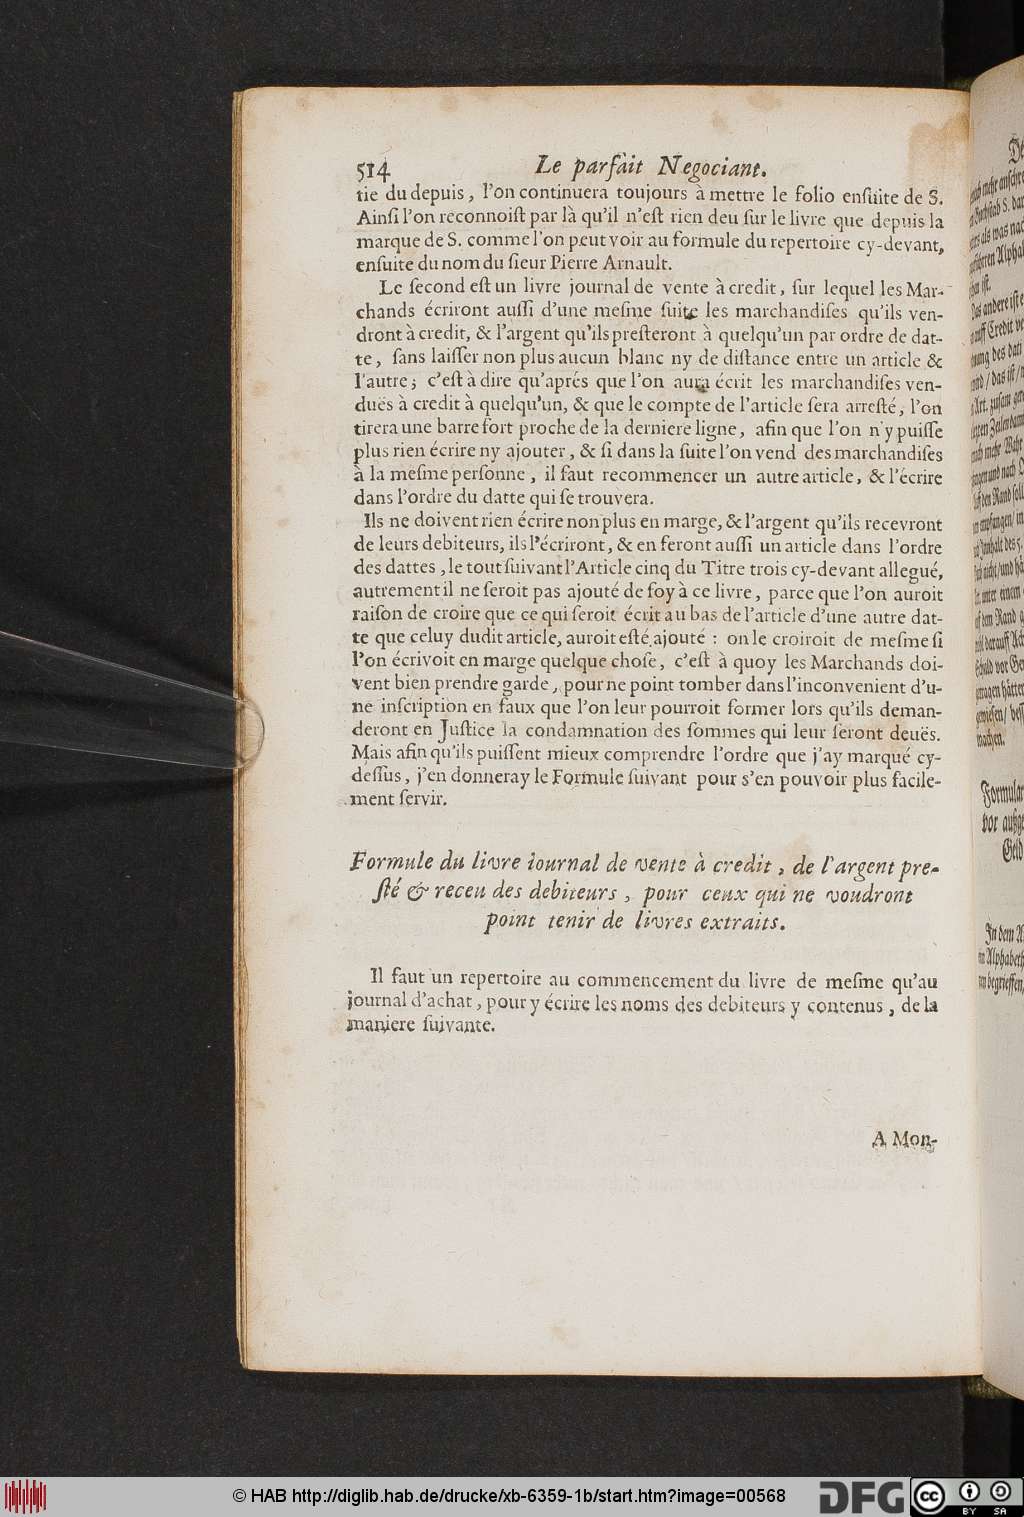 514 Le parfait Negociant.
tie du depuis, l'on continuera toujours à mettre le folio enſuite de S.
Ainſi l'on reconnoiſt par là qu'il n'eſt rien deu ſur le livre que depuis la
marque de S. comme l'on peut voir au formule du repertoire cy-devant,
enſuite du nom du ſieur Pierre Arnault.
Le ſecond eſt un livre journal de vente à credit, ſur lequel les Mar-
chands écriront auſſi d'une meſme ſuite les marchandiſes qu'ils ven-
dront à credit, & l'argent qu'ils preſteront à quelqu'un par ordre de dat-
te, ſans laiſſer non plus aucun blanc ny de diſtance entre un article &
l'autre; c'eſt à dire qu'aprés que l'on aura écrit les marchandiſes ven-
duës à credit à quelqu'un, & que le compte de l'article ſera arreſté, l'on
tirera une barre fort proche de la derniere ligne, afin que l'on n'y puiſſe
plus rien écrire ny ajouter, & ſi dans la ſuite l'on vend des marchandiſes
à la meſme perſonne, il faut recommencer un autre article, & l'écrire
dans l'ordre du datte qui ſe trouvera.
Ils ne doivent rien écrire non plus en marge, & l'argent qu'ils recevront
de leurs debiteurs, ils l'écriront, & en feront auſſi un article dans l'ordre
des dattes, le tout ſuivant l'Article cinq du Titre trois cy-devant allegué,
autrement il ne ſeroit pas ajouté de foy à ce livre, parce que l'on auroit
raiſon de croire que ce qui ſeroit écrit au bas de l'article d'une autre dat-
te que celuy dudit article, auroit eſté ajouté : on le croiroit de meſme ſi
l'on écrivoit en marge quelque choſe, c'eſt à quoy les Marchands doi-
vent bien prendre garde, pour ne point tomber dans l'inconvenient d'u-
ne inſcription en faux que l'on leur pourroit former lors qu'ils deman-
deront en Juſtice la condamnation des ſommes qui leur ſeront deuës.
Mais afin qu'ils puiſſent mieux comprendre l'ordre que j'ay marqué cy-
deſſus, j'en donneray le Formule ſuivant pour s'en pouvoir plus facile-
ment ſervir.
Formule du livre iournal de vente à credit, de l'argent pre-
ſté & receu des debiteurs, pour ceux qui ne voudront
point tenir de livres extraits.
Il faut un repertoire au commencement du livre de meſme qu'au
journal d'achat, pour y écrire les noms des debiteurs y contenus, de la
maniere ſuivante.
A Mon-
© HAB http://diglib.hab.de/drucke/xb-6359-1b/start.htm?image=00568
DFG
cc BY SA